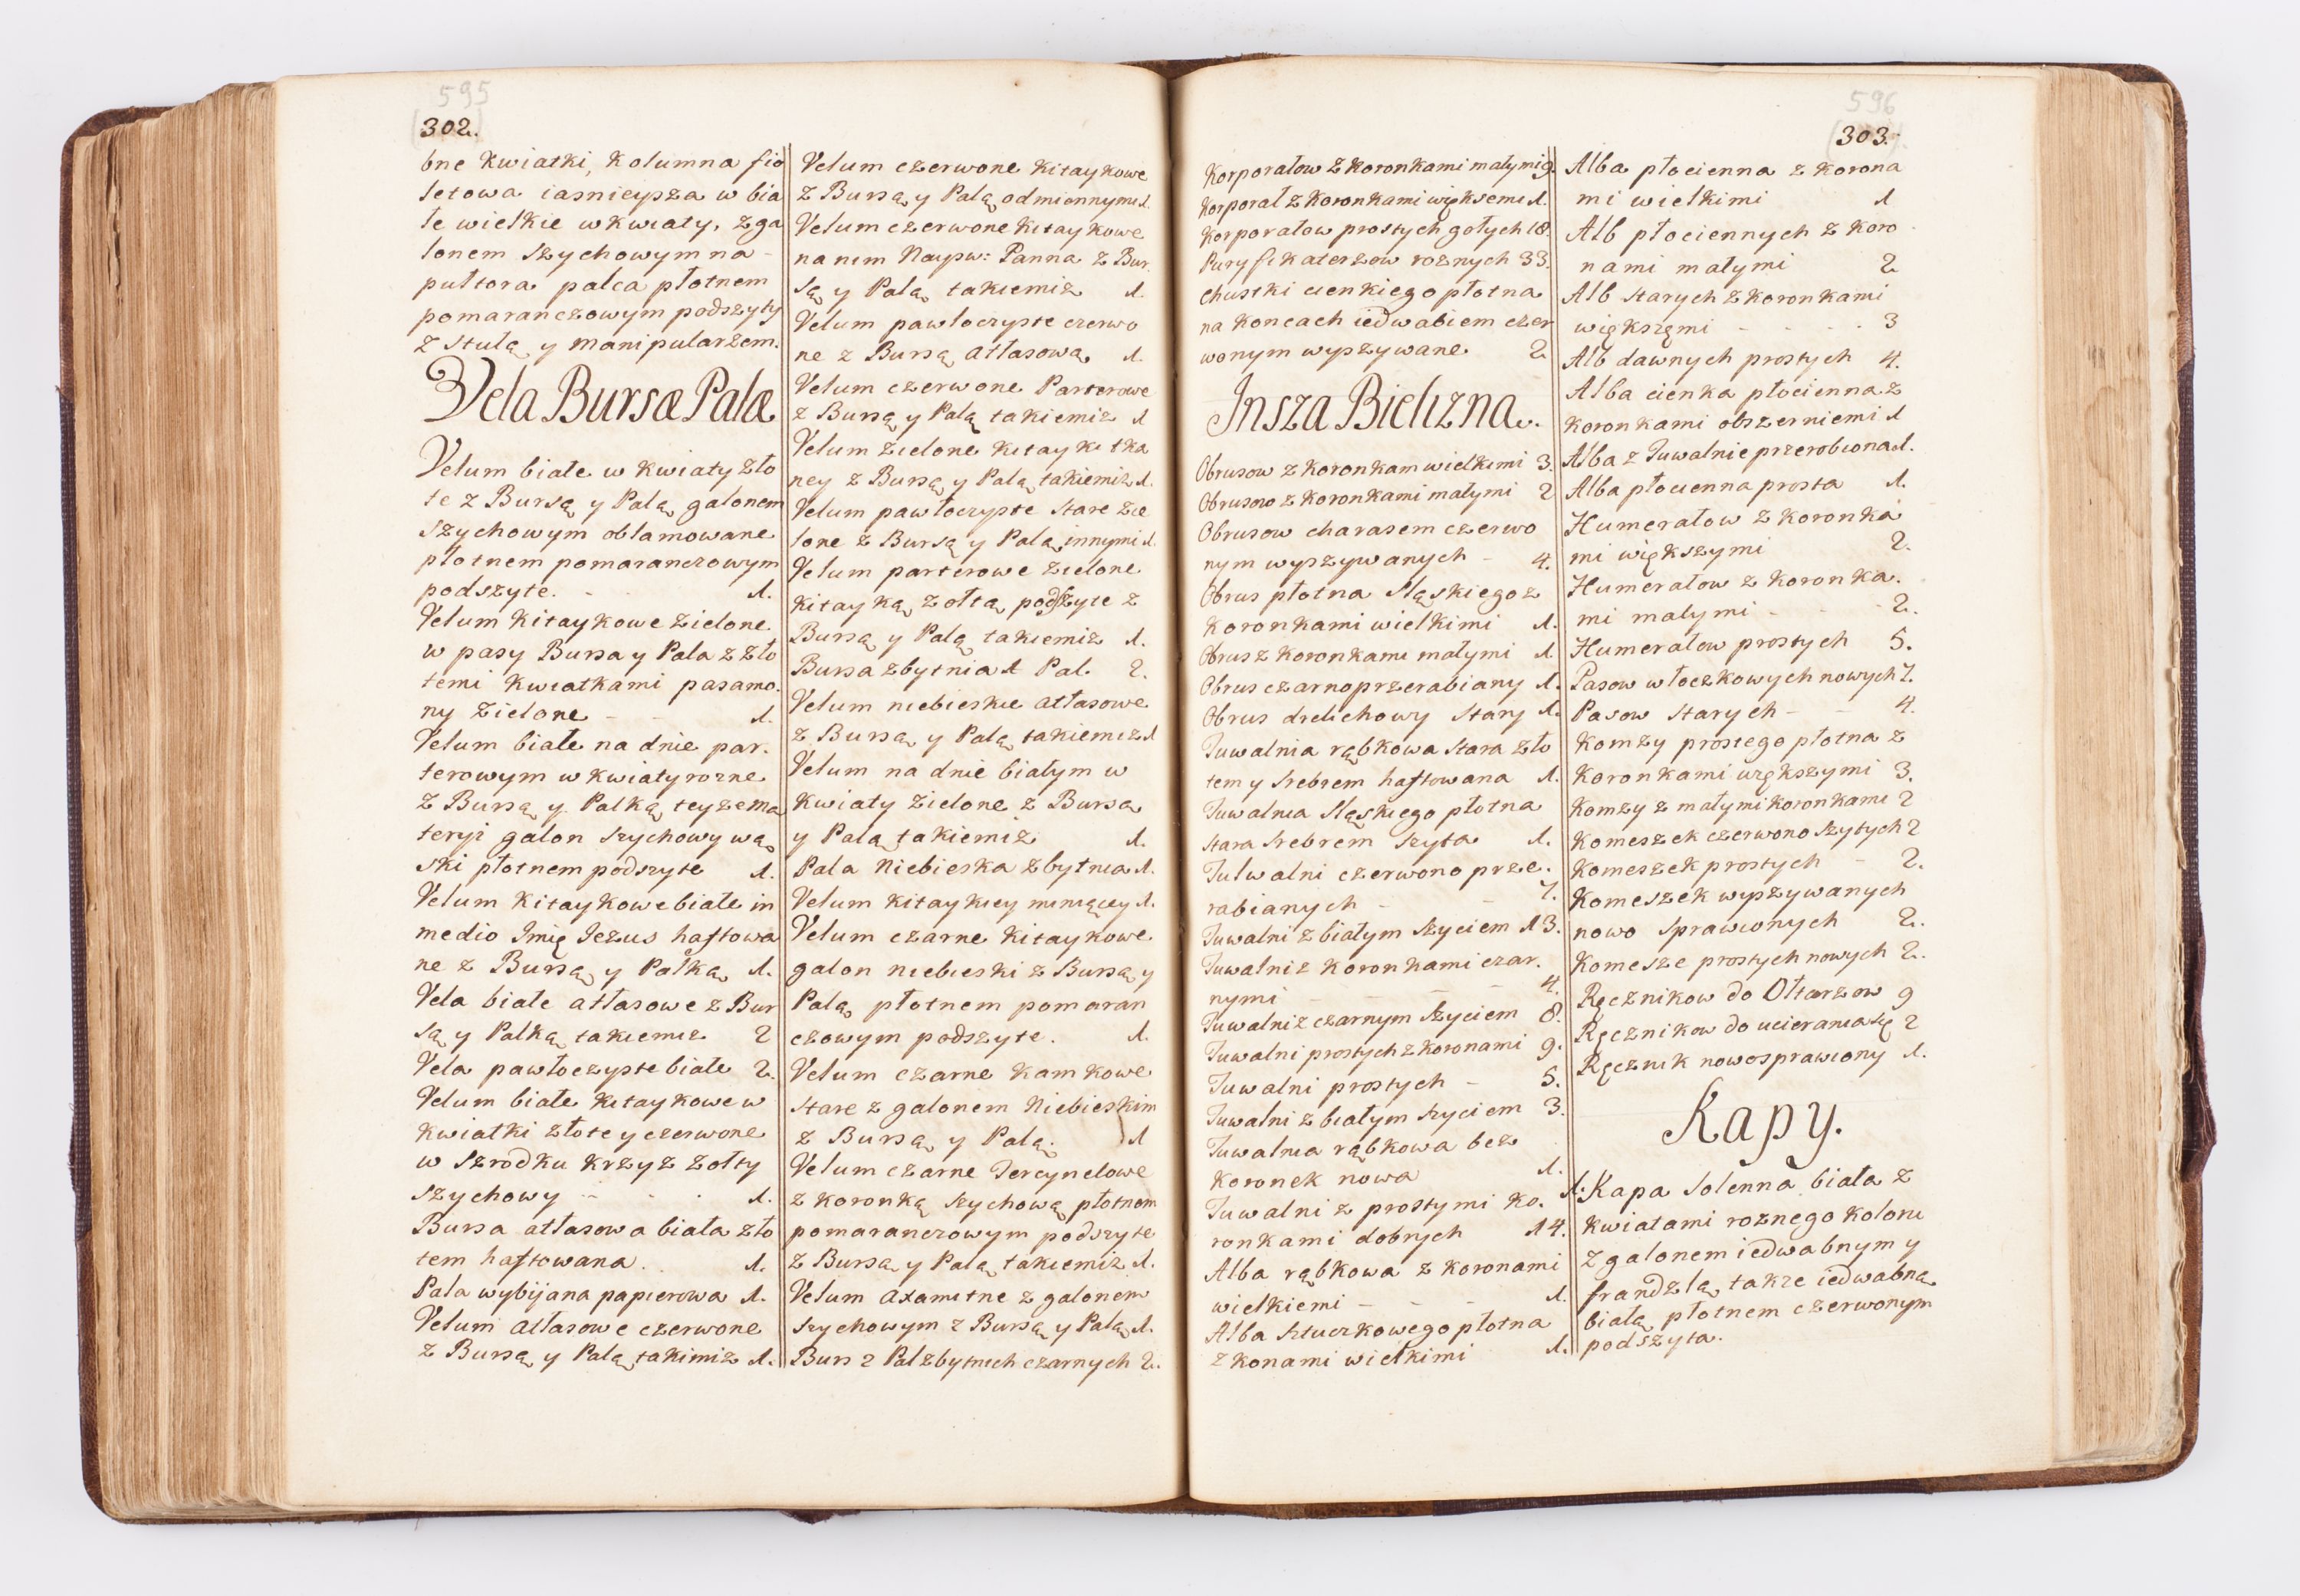 595
302.
bne Kwiatki, Kolumna fio
letowa iasnieysza w bia
łe wielkie w kwiaty, z ga
lonem szychowym na -
pułtora palca płotnem
pomaranczowym podszyty
z Stułą y manipularzem.
Vela Bursæ Palæ
Velum białe w kwiaty zło
te z Bursą y Palą galonem
szychowym oblamowane
płotnem pomaranczowym
podszyte. - 1.
Velum Kitaykowe zielone
w pasy Bursa y Pala z zło
temi kwiatkami pasamo.
ny zielone - - 1.
Velum białe na dnie par.
terowym w kwiaty rozne
z Bursą y Palką teyze ma
teryi galon szychowy wą
ski płotnem podszyte 1.
Velum Kitaykowe białe in
medio Jmię Jezus haftowa
ne z Bursą y Palką 1.
Vela białe atłasowe z Bur
są y Palką takiemiz 2
Vela pawłoczyste białe 2.
Velum białe Kitaykowe w
kwiatki złote y czerwone
w szrodku krzyz zołty
szychowy - . . 1.
Bursa atłasowa biała zło
tem haftowana . . 1.
Pala wybijana papierowa 1.
Velum atłasowe czerwone
z Bursą y Palą takimiz 1.
Velum czerwone Kitaykowe
z Bursą y Palą odmiennymi 1.
Velum czerwone Kitaykowe
na nim Nayśw: Panna z Bur.
są y Palą takiemiz 1.
Velum pawłoczyste czerwo
ne z Bursą atłasową 1.
Velum czerwone Parterowe
z Bursą y Palą takiemiz 1
Velum zielone Kitayki tka
ney z Bursą y Palą takiemiz 1.
Velum pawłoczyste stare zie
lone z Bursą y Palą innymi 1.
Velum parterowe zielone
kitayką zołtą podszyte z
Bursą y Palą takiemiz 1.
Bursa zbytnia 1 Pal. 2.
Velum niebieskie atłasowe
z Bursą y Palą takiemiz 1
Velum na dnie białym w
kwiaty zielone z Bursa
y Palą takiemiż 1.
Pala Niebieska zbytnia 1.
Velum kitaykiey mieniącey 1.
Velum czarne Kitaykowe
galon niebieski z Bursą y
Palą płotnem pomaran
czowym podszyte. 1.
Velum czarne Kamkowe
stare z galonem Niebieskim
z Bursą y Palą. 1
Velum czarne Tercynelowe
z koronką szychową płotnem
pomaranczowym podszyte
z Bursą y Palą takiemiz 1.
Velum axamitne z galonem
szychowym z Bursą y Palą 1.
Burs 2 Pal zbytnich czarnych 2.
596
303.
Korporałow z koronkami małymi 9.
Korporał z koronkami większemi 1.
Korporałow prostych gołych 18.
Puryfikaterzow roznych 33.
Chustki cienkiego płotna
na koncach iedwabiem czer
wonym wyszywane. 2
Jnsza Bielizna.
Obrusow z koronkam wielkimi 3.
Obrusow z koronkami małymi 2
Obrusow charasem czerwo
nym wyszywanych - 4.
Obrus płotna sląskiego z
koronkami wielkimi 1.
Obrus z koronkami małymi 1.
Obrus czarno przerabiany 1.
Obrus drelichowy stary 1.
Tuwalnia rąbkowa stara zło
tem y srebrem haftowana 1.
Tuwalnia sląskiego płotna
stara srebrem szyta 1.
Tulwalni czerwono prze.
rabianych - - 7.
Tuwalni z białym szyciem 13.
Tuwalni z koronkami czar.
nymi - - - - 4.
Tuwalni z czarnym szyciem 8.
Tuwalni prostych z koronami 9.
Tuwalni prostych - 5.
Tuwalni z białym szyciem 3.
Tuwalnia rąbkowa bez
koronek nowa 1.
Tuwalni z prostymi ko.
ronkami dobrych 14.
Alba rąbkowa z koronami
wielkiemi - - - 1.
Alba sztuczkowego płotna
z konami wielkimi 1.
Alba płocienna z korona
mi wielkimi 1
Alb płociennych z koro
nami małymi 2
Alb starych z koronkami
większęmi - - - . 3
Alb dawnych prostych 4.
Alba cienka płocienna z
koronkami obszerniemi 1
Alba z Tuwalnie przerobiona 1.
Alba płocienna prosta 1.
Humerałow z koronka
mi większymi 2.
Humerałow z koronka.
mi małymi - - - 2.
Humerałow prostych 5.
Pasow włoczkowych nowych 7.
Pasow starych - - 4.
Komzy prostego płotna z
koronkami większymi 3.
Komzy z małymi koronkami 2
Komeszek czerwono szytych 2
Komeszek prostych - 2.
Komeszek wyszywanych
nowo sprawionych 2.
Komesze prostych nowych 2.
Ręcznikow do Ołtarzow 9
Ręcznikow do ucierania się 2
Ręcznik nowosprawiony 1.
Kapy.
1. Kapa Solenna biała z
kwiatami roznego koloru
z galonem iedwabnym y
frandzlą takze iedwabną
białą płotnem czerwonym
podszyta.